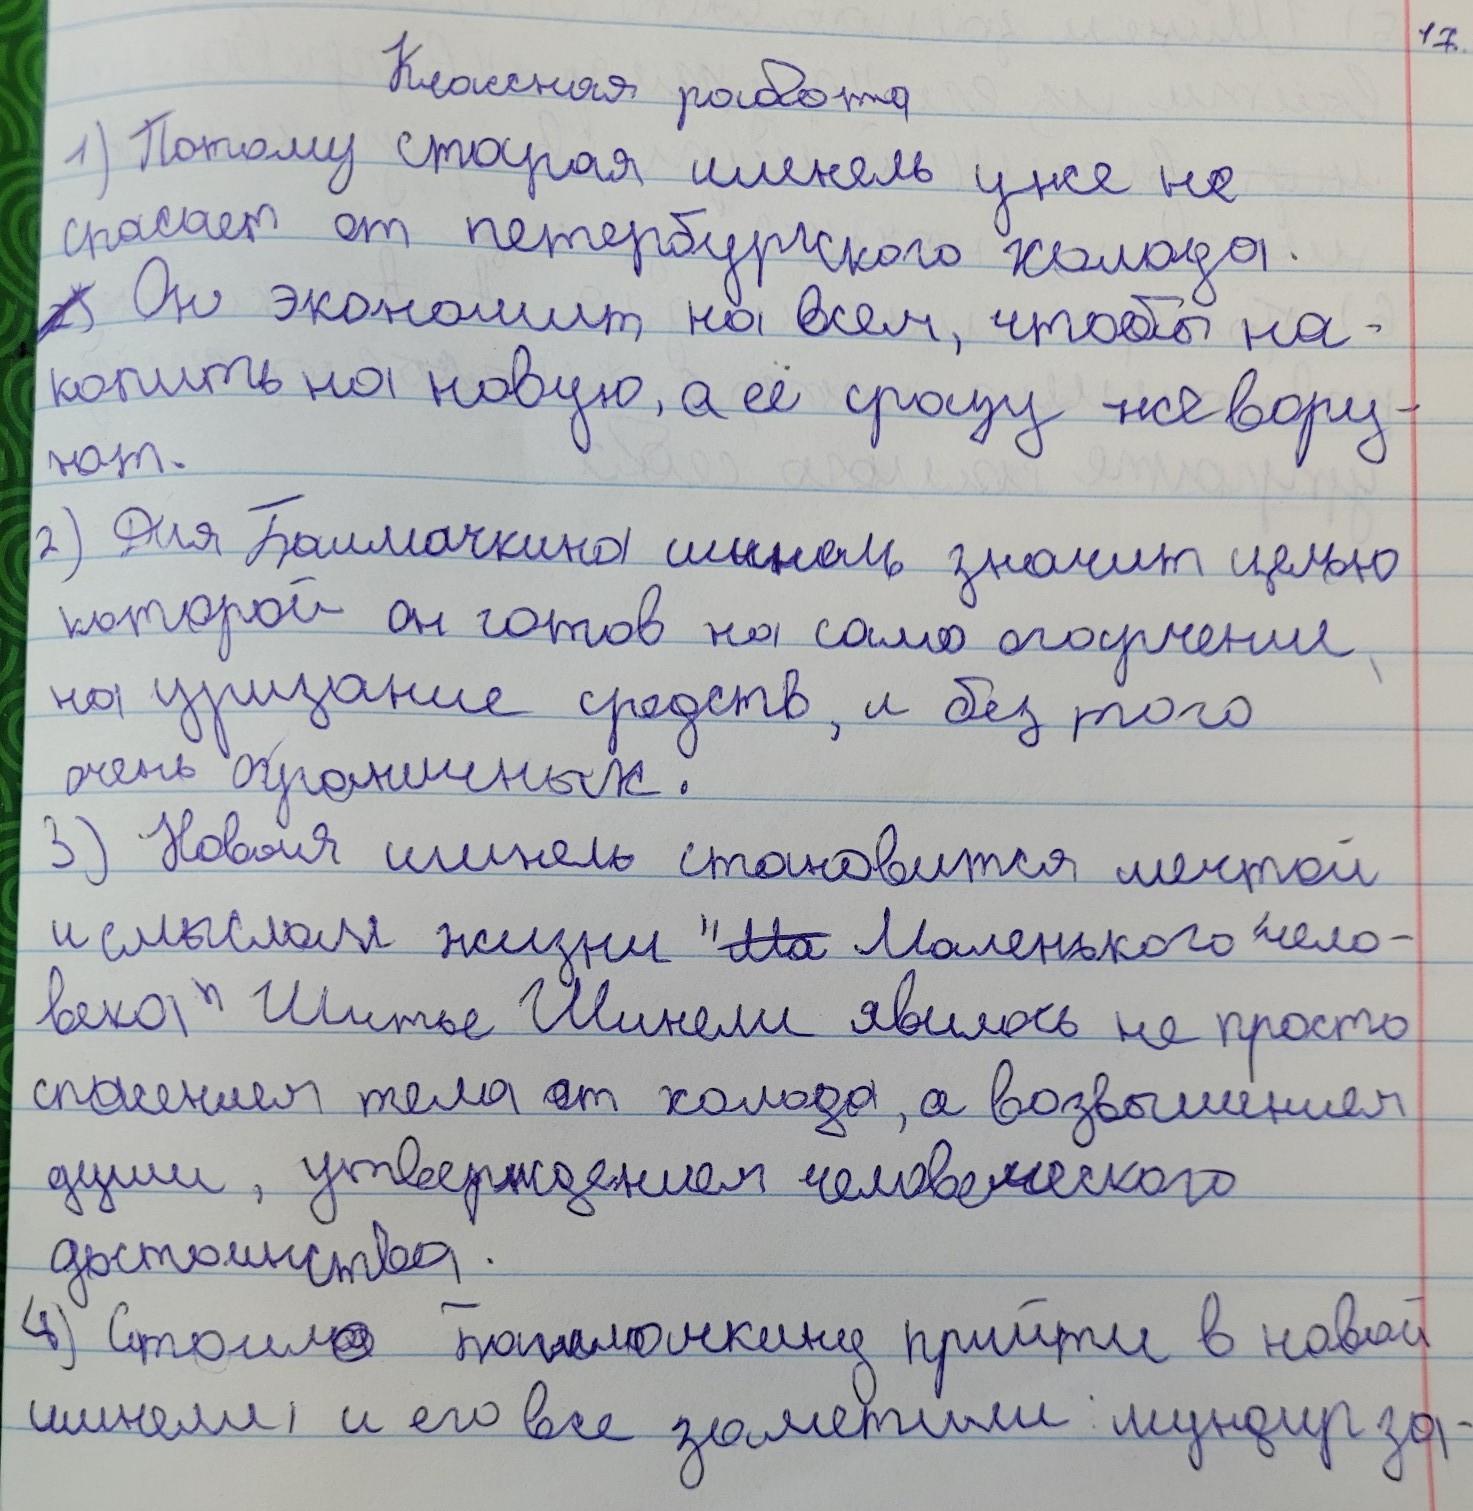 17.
Классная работа
1) Потому старая шинель уже не
спасает от петербургского холода.
Он экономит на всем, чтобы на-
копить на новую, а её сразу же вору-
ют.
2) Для Башмачкина шинель значит целью
которой он готов на само огорчение,
на уризание средств, и без того
очень ограничных.
3) Новая шинель становится мечтой
и смыслам жизни "Ма Маленького чело-
века" Шитье Шинели явилось не просто
спасением тела от холода, а возвышением
души, утверждением человеческого
достоинства.
4) Стоило Башмачкину прийти в новой
шинели, и его все заметили: мундир за-